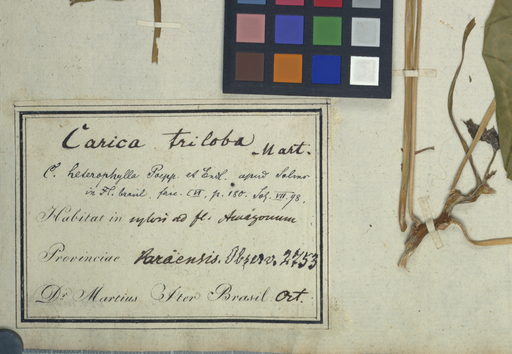 Carica triloba Mart.
C. heterophylla Poepp. et Endl. apud Solms
in Fl. brasil. fasc. CVI. p. 180. VII 98.
Habitat in sylvis ad fl. Amazonum
Provinciae Paraensis. Observ. 2753
Dr. Martius Iter Brasil. Oct.